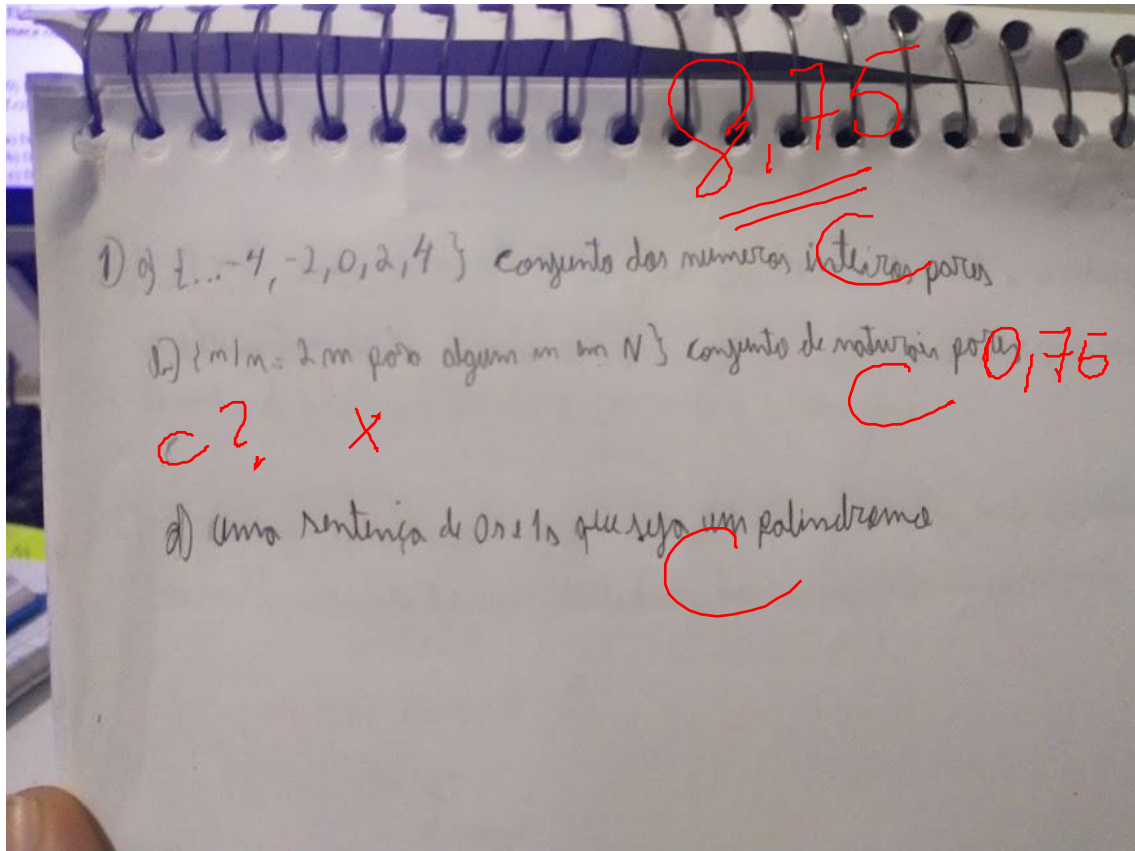 8,75
1) a) {...-4, -2, 0, 2, 4 } conjunto dos numeros inteiros pares
b) {n/n = 2m para algum m em N } conjunto de naturais pares 0,75
C
C
c?. X
d) uma sentença de 0s e 1s que seja um palindromo
C